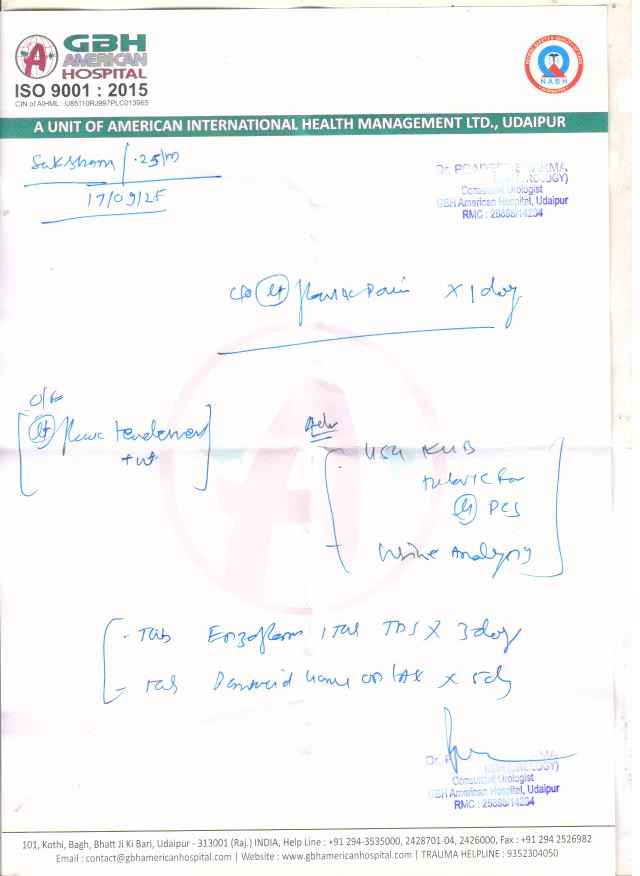 GBH
AMERICAN
HOSPITAL
ISO 9001 : 2015
CIN of AIHML : U85110RJ997PLC013965
NABH
A UNIT OF AMERICAN INTERNATIONAL HEALTH MANAGEMENT LTD., UDAIPUR
Saksham / 25/m
17/09/25
Dr. PRADEEP SHARMA
(UROLOGY)
Consultant Urologist
GBH American Hospital, Udaipur
RMC : 25688/14234
c/o Lt flank Pain x 1 day
O/E
Lt flank tenderness
Adv
USG KUB
Lt PCS
Urine Analysis
- Tab 1 Tab TDS x 3 day
- Tab x 5 day
Dr. P SHARMA
(UROLOGY)
Consultant Urologist
GBH American Hospital, Udaipur
RMC : 25688/14234
101, Kothi, Bagh, Bhatt Ji Ki Bari, Udaipur - 313001 (Raj.) INDIA, Help Line : +91 294-3535000, 2428701-04, 2426000, Fax : +91 294 2526982
Email : contact@gbhamericanhospital.com | Website : www.gbhamericanhospital.com | TRAUMA HELPLINE : 9352304050